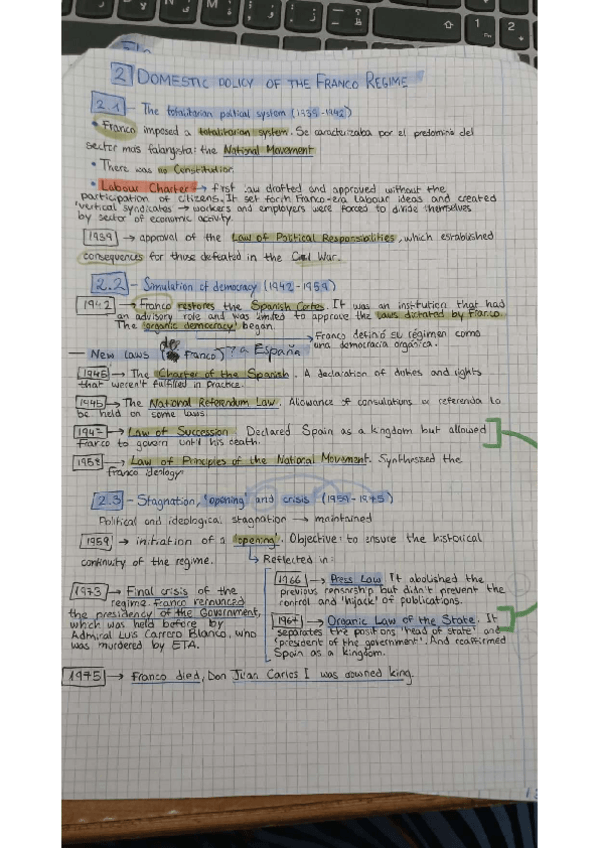 2 DOMESTIC POLICY OF THE FRANCO REGIME
2.1 - The totalitarian political system (1939-1942)
• Franco imposed a totalitarian system. Se caracterizaba por el predominio del
sector más falangista: the National Movement
• There was no Constitution.
• Labour Charter → first law drafted and approved without the
participation of citizens. It set forth Franco-era labour ideas and created
'vertical syndicates' → workers and employers were forced to divide themselves
by sector of economic activity.
1939 → approval of the Law of Political Responsibilities, which established
consequences for those defeated in the Civil War.
2.2 - Simulation of democracy (1942-1959)
1942 → Franco restores the Spanish Cortes. It was an institution that had
an advisory role and was limited to approve the laws dictated by Franco
The 'organic democracy' began.
→ Franco definió su régimen como
una democracia orgánica.
- New laws (de Franco) a España
1945 → The Charter of the Spanish. A declaration of duties and rights
that weren't fulfilled in practice.
1945 → The National Referendum Law. Allowance of consultations or referenda to
be held on some laws
1947 → Law of Succession. Declared Spain as a kingdom but allowed
Franco to govern until his death.
1958 → Law of Principles of the National Movement. Synthesized the
Franco ideology
2.3 - Stagnation, 'opening' and crisis (1959-1975)
Political and ideological stagnation → maintained
1959 → initiation of a 'opening'. Objective: to ensure the historical
continuity of the regime.
→ Reflected in:
1966 → Press Law It abolished the
previous censorship but didn't prevent the
control and 'hijack' of publications.
1967 → Organic Law of the State. It
separates the positions 'head of state' and
'president of the government'. And reaffirmed
Spain as a kingdom.
1973 → Final crisis of the
regime. Franco renounced
the presidency of the Government,
which was held before by
Admiral Luis Carrero Blanco, who
was murdered by ETA.
1975 → Franco died, Don Juan Carlos I was crowned king.